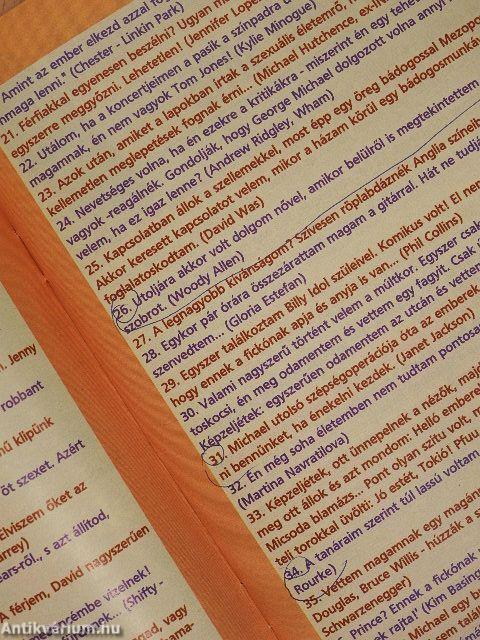 Amint az ember elkezd azzal fog
önmaga lenni." (Chester - Linkin Park)
21. Férfiakkal egyenesen beszélni? Ugyan má
egyszerre meggyőzni. Lehetetlen! (Jennifer Lope
22. Utálom, ha a koncertjeimen a pasik a színpadra d
magamnak, én nem vagyok Tom Jones! (Kylie Minogue)
23. Azok után, amiket a lapokban írtak a szexuális életemről,
kellemetlen meglepetések fognak érni... (Michael Hutchence, ex-IN
24. Nevetséges volna, ha én ezekre a kritikákra - miszerint én egy tehe
vagyok -reagálnék. Gondolják, hogy George Michael dolgozott volna annyi
velem, ha ez igaz lenne? (Andrew Ridgley, Wham)
25. Kapcsolatban állok a szellemekkel, most épp egy öreg bádogossal Mezopo
Akkor keresett kapcsolatot velem, mikor a házam körül egy bádogosmunká
foglalatoskodtam. (David Was)
26. Utoljára akkor volt dolgom nővel, amikor belülről is megtekintettem
szobrot. (Woody Allen)
27. A legnagyobb kívánságom? Szívesen röplabdáznék Anglia színeib
28. Egykor pár órára összezárattam magam a gitárral. Hát ne tudja
szenvedtem... (Gloria Estefan)
29. Egyszer találkoztam Billy Idol szüleivel. Komikus volt! El nem
hogy ennek a fickónak apja és anyja is van... (Phil Collins)
30. Valami nagyszerű történt velem a múltkor. Egyszer csak
toskocsi, én meg odamentem és vettem egy fagyit. Csak
Képzeljétek: egyszerűen odamentem az utcán és vettem
31. Michael utolsó szépségoperációja óta az emberek
ni bennünket, ha énekelni kezdek. (Janet Jackson)
32. Én még soha életemben nem tudtam pontosa
(Martina Navratilova)
33. Képzeljétek, ott ünnepelnek a nézők, maj
meg ott állok és azt mondom: Helló embere
Micsoda blamázs... Pont olyan szitu volt, m
teli torokkal üvölti: Jó estét, Tokió! Pfuu
34. A tanáraim szerint túl lassú voltam
Rourke)
35. Vettem magamnak egy magán
Douglas, Bruce Willis - húzzák a s
Schwarzenegger)
Michael egy ba
Prince? Ennek a fickónak
rek rajta!' (Kim Basing
. Jenny
robbant
nű klipünk
öt szexet. Azért
Elviszem őket az
rrey)
ars-ről., s azt állítod,
A férjem, David nagyszerűen
émbe vizelnek!
nek... (Shifty -
vagy
Antikvárium.hu